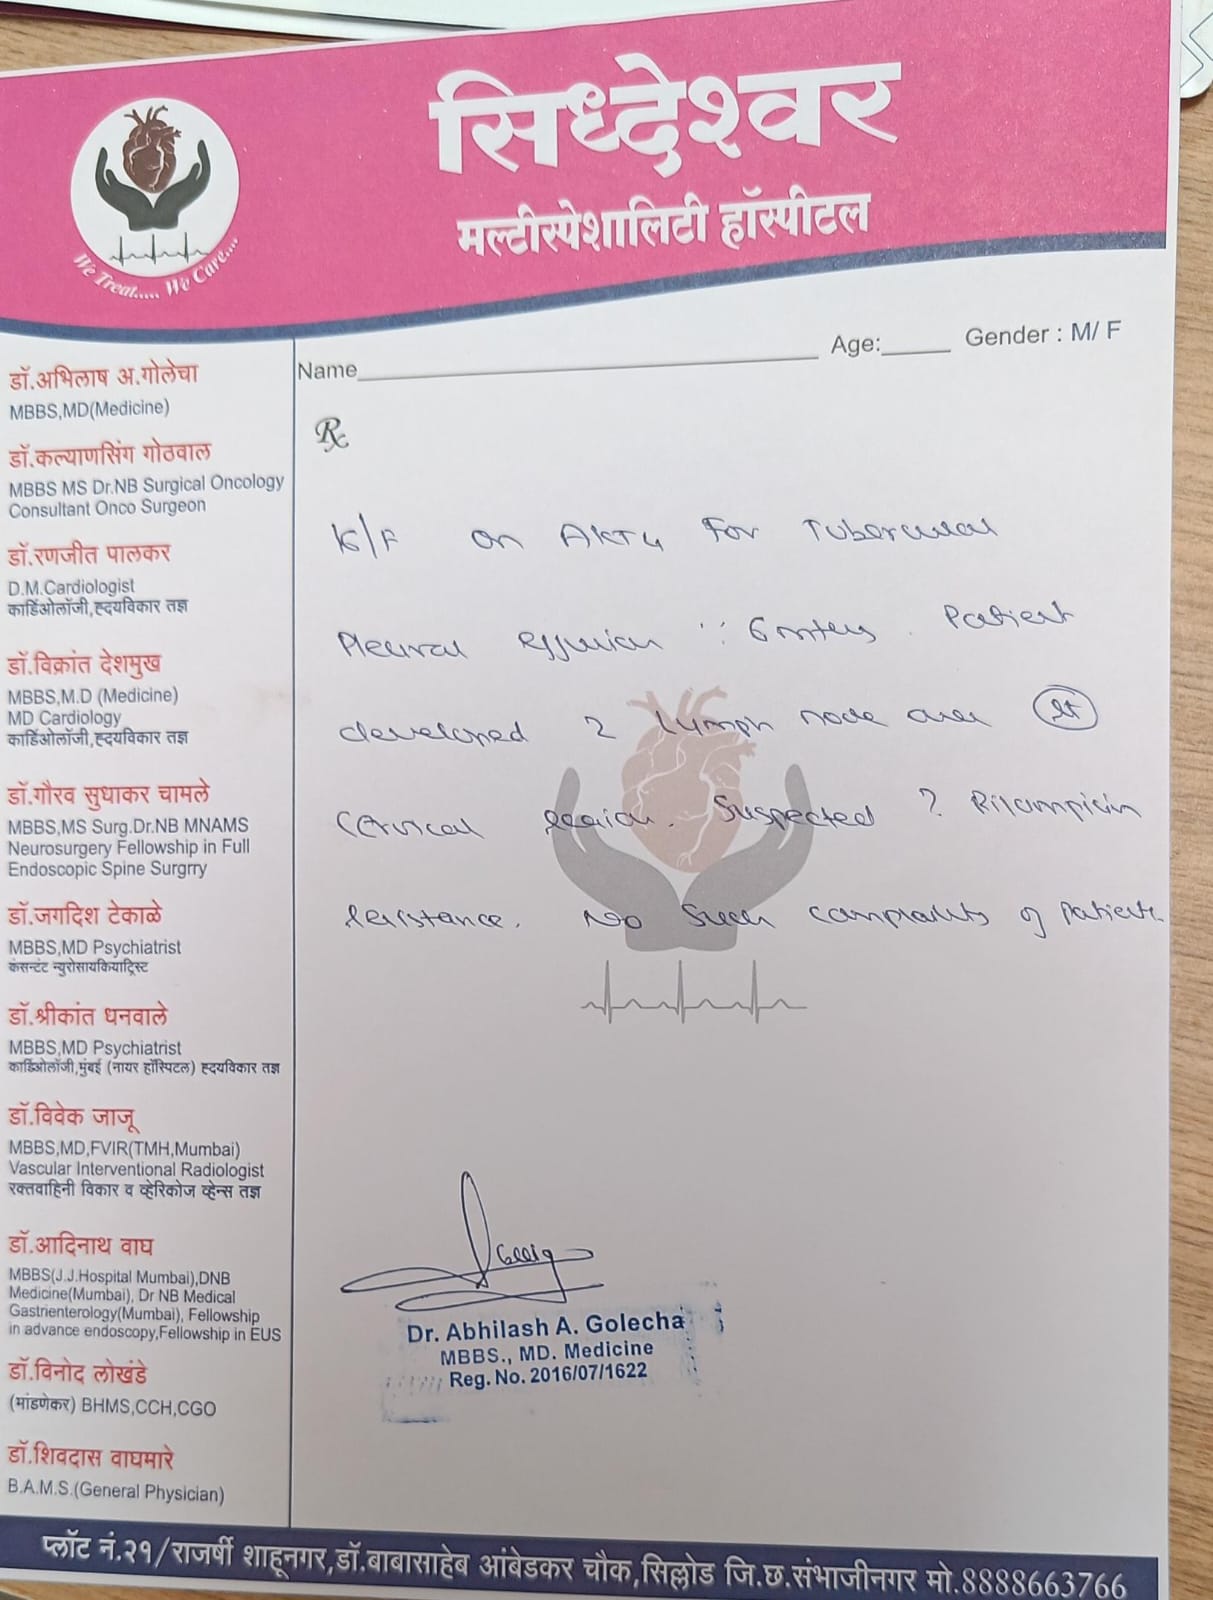 सिध्देश्वर
मल्टीस्पेशालिटी हॉस्पीटल
We Treat..... We Care....
Name Age: Gender : M/ F
डॉ.अभिलाष अ.गोलेचा
MBBS,MD(Medicine)
डॉ.कल्याणसिंग गोठवाल
MBBS MS Dr.NB Surgical Oncology
Consultant Onco Surgeon
डॉ.रणजीत पालकर
D.M.Cardiologist
कार्डिओलॉजी,ह्दयविकार तज्ञ
डॉ.विक्रांत देशमुख
MBBS,M.D (Medicine)
MD Cardiology
कार्डिओलॉजी,ह्दयविकार तज्ञ
डॉ.गौरव सुधाकर चामले
MBBS,MS Surg.Dr.NB MNAMS
Neurosurgery Fellowship in Full
Endoscopic Spine Surgrry
डॉ.जगदिश टेकाळे
MBBS,MD Psychiatrist
कंसन्टंट न्युरोसायकियाट्रिस्ट
डॉ.श्रीकांत धनवाले
MBBS,MD Psychiatrist
कार्डिओलॉजी,मुंबई (नायर हॉस्पिटल) ह्दयविकार तज्ञ
डॉ.विवेक जाजू
MBBS,MD,FVIR(TMH,Mumbai)
Vascular Interventional Radiologist
रक्तवाहिनी विकार व व्हेरिकोज व्हेन्स तज्ञ
डॉ.आदिनाथ वाघ
MBBS(J.J.Hospital Mumbai),DNB
Medicine(Mumbai), Dr NB Medical
Gastrienterology(Mumbai), Fellowship
in advance endoscopy,Fellowship in EUS
डॉ.विनोद लोखंडे
(मांडणेकर) BHMS,CCH,CGO
डॉ.शिवदास वाघमारे
B.A.M.S.(General Physician)
Rx
on AKT4 For
Pleural Effusion 6 mths. Patient
developed 2 lymph node over
cervical region. Suspected ? Rifampicin
resistance. No such complaints of patient.
Dr. Abhilash A. Golecha
MBBS., MD. Medicine
Reg. No. 2016/07/1622
प्लॉट नं.२१/राजर्षी शाहूनगर,डॉ.बाबासाहेब आंबेडकर चौक,सिल्लोड जि.छ.संभाजीनगर मो.8888663766